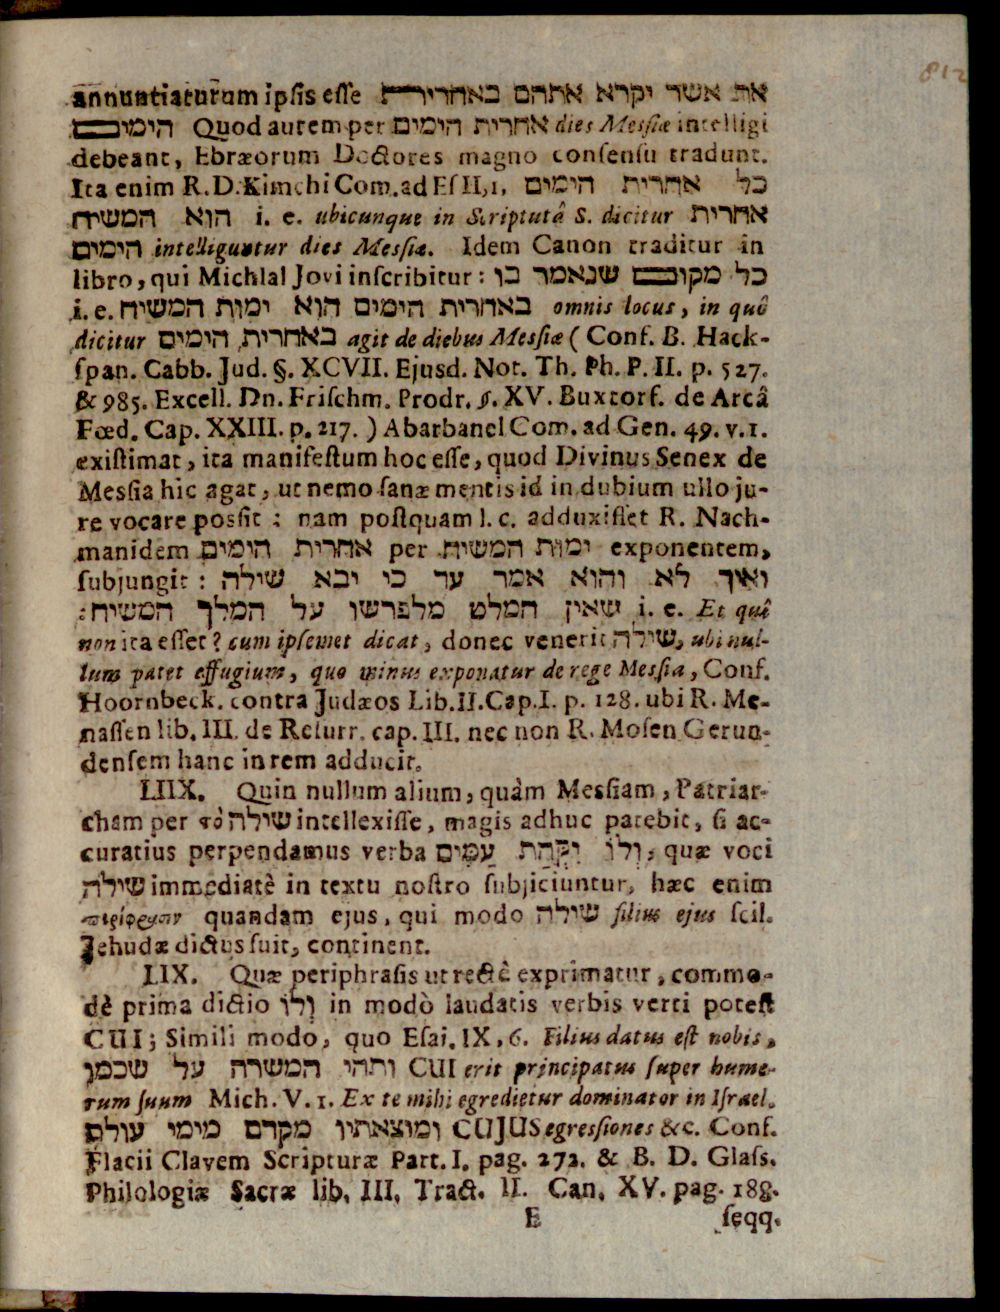 812
annuntiaturum ipsis esse את אשר יקרא אתהם באחרירת
הימים Quod autem per אחרית הימים dies Messiæ intelligi
debeant, Ebræorum Doctores magno consensu tradunt.
Ita enim R. D. Kimchi Com. ad Es II, 1. כל אחרית הימים
הוא המשיח i. e. ubicunque in Scripturâ S. dicitur אחרית
הימים intelliguntur dies Messiæ. Idem Canon traditur in
libro, qui Michlal Jovi inscribitur: כל מקום שנאמר בו
i. e. באחרית הימים הוא ימות המשיח omnis locus, in quô
dicitur באחרית הימים agit de diebus Messiæ (Conf. B. Hack-
span. Cabb. Jud. §. XCVII. Ejusd. Not. Th. Ph. P. II. p. 527.
& 985. Excell. Dn. Frischm. Prodr. §. XV. Buxtorf. de Arcâ
Fœd. Cap. XXIII. p. 217. ) Abarbanel Com. ad Gen. 49. v. 1.
existimat, ita manifestum hoc esse, quod Divinus Senex de
Messia hic agat, ut nemo sanæ mentis id in dubium ullo ju-
re vocare possit; nam postquam l. c. adduxisset R. Nach-
manidem אחרית הימים per ימות המשיח exponentem,
subjungit: ואיך לא והוא אמר עד כי יבא שילה
שאין המלט מלפרשו על המלך המשיח: i. e. Et quî
non ita esset? cum ipsemet dicat, donec venerit שילה, ubi nul-
lum patet effugium, quo minus exponatur de rege Messia, Conf.
Hoornbeck. contra Judæos Lib. II. Cap. I. p. 128. ubi R. Me-
nassen lib. III. de Resurr. cap. III. nec non R. Mosen Gerun-
densem hanc in rem adducit.
LIIX. Quin nullum alium, quàm Messiam, Patriar-
cham per τὸ שילה intellexisse, magis adhuc patebit, si ac-
curatius perpendamus verba וְלוֹ יִקְּהַת עַמִּים, quæ voci
שילה immediatè in textu nostro subjiciuntur, hæc enim
περίφρασιν quandam ejus, qui modo שילה filius ejus scil.
Jehudæ dictus fuit, continent.
LIX. Quæ periphrasis ut rectè exprimatur, commo-
dè prima dictio וְלוֹ in modò laudatis verbis verti potest
CUI; Simili modo, quo Esai. IX, 6. Filius datus est nobis,
ותהי המשרה על שכמו CUI erit principatus super hume-
rum suum Mich. V. 1. Ex te mihi egredietur dominator in Israel.
ומוצאתיו מקדם מימי עולם CUJUS egressiones &c. Conf.
Flacii Clavem Scripturæ Part. I. pag. 272. & B. D. Glass.
Philologiæ Sacræ lib. III. Tract. II. Can. XV. pag. 188.
E seqq.